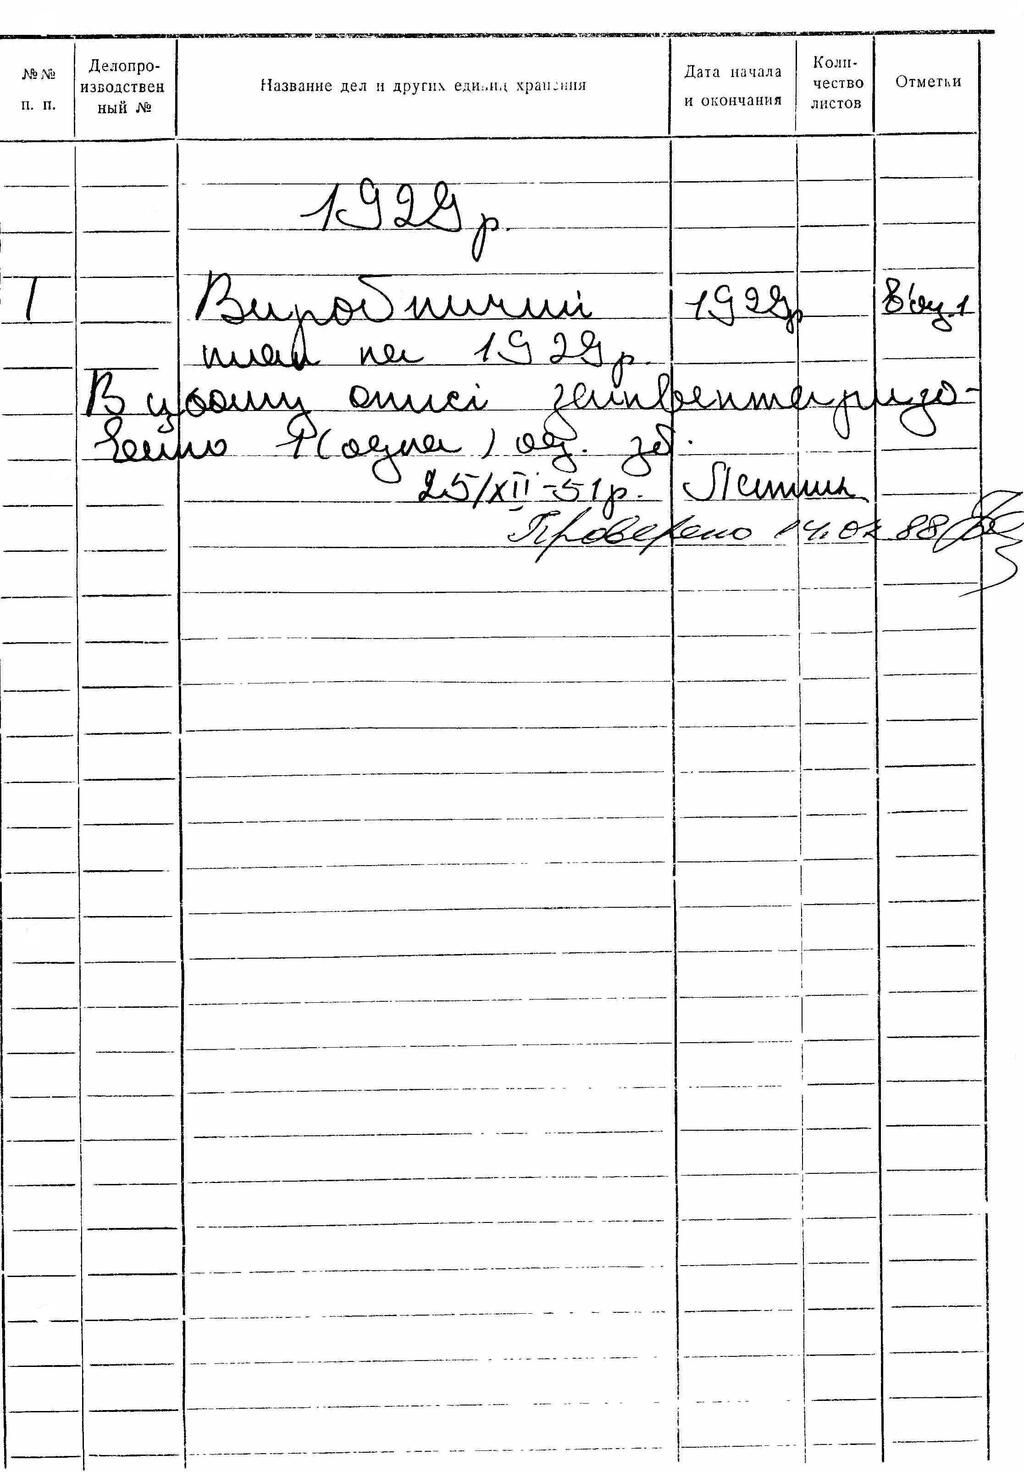 №№ п. п.
Делопро-
изводствен
ный №
Название дел и других единиц хранения
Дата начала
и окончания
Коли-
чество
листов
Отметки
1929 р.
1 Виробничий 1929р
план на 1929 р.
В цьому описі заінвентаризо-
вано 1 (одна) од. зб.
25/XII-51 р.
Проверено 88